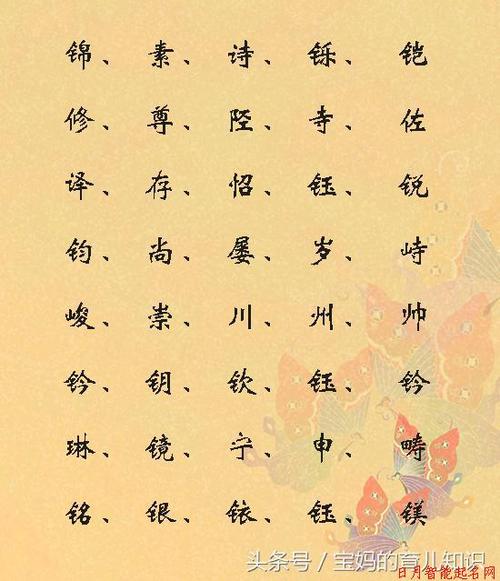 锦、素、诗、铄、铠
修、尊、陞、寺、佐
译、存、怊、钰、锐
钧、尚、屡、岁、峙
峻、崇、川、州、帅
钤、钥、钦、钰、钤
琳、镜、宁、申、畴
铭、银、铱、钰、镁
头条号／宝妈的育儿知识
日月智能起名网